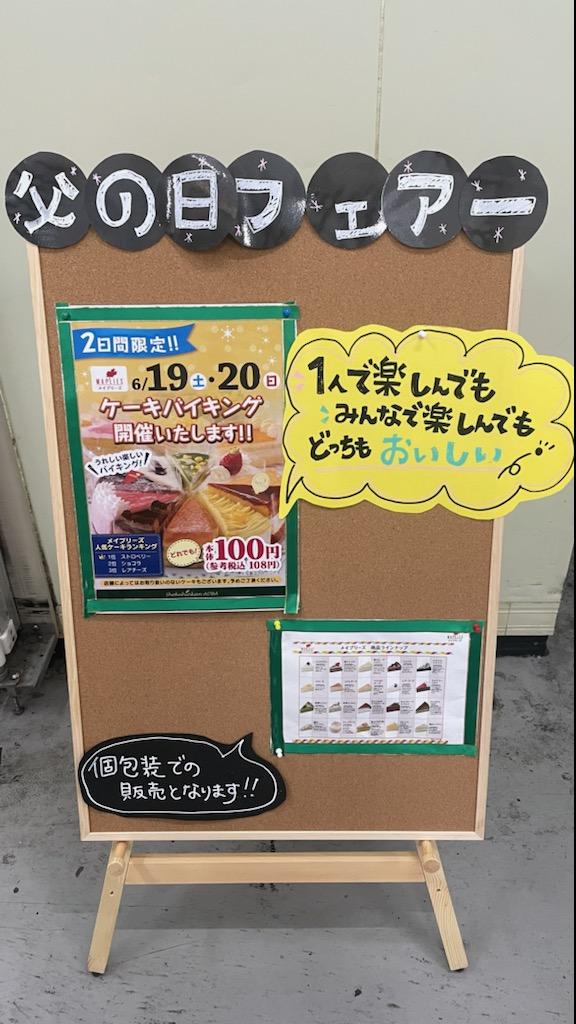 父の日フェアー
2日間限定!!
MAPLIES
メイプリーズ
6/19土・20日
ケーキバイキング
開催いたします!!
うれしい楽しい
バイキング!
メイプリーズ
人気ケーキランキング
1位 ストロベリー
2位 ショコラ
3位 レアチーズ
どれでも!
本体100円
(参考税込 108円)
店舗によってはお取り扱いのないケーキもございます。予めご了承ください。
1人で楽しんでも
みんなで楽しんでも
どっちも おいしい
メイプリーズ 商品ラインナップ
個包装での
販売となります!!